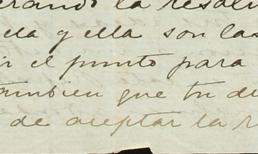 erando la resolu
ella y ella son las
ir el punto para
tambien que tu de
de aceptar la r